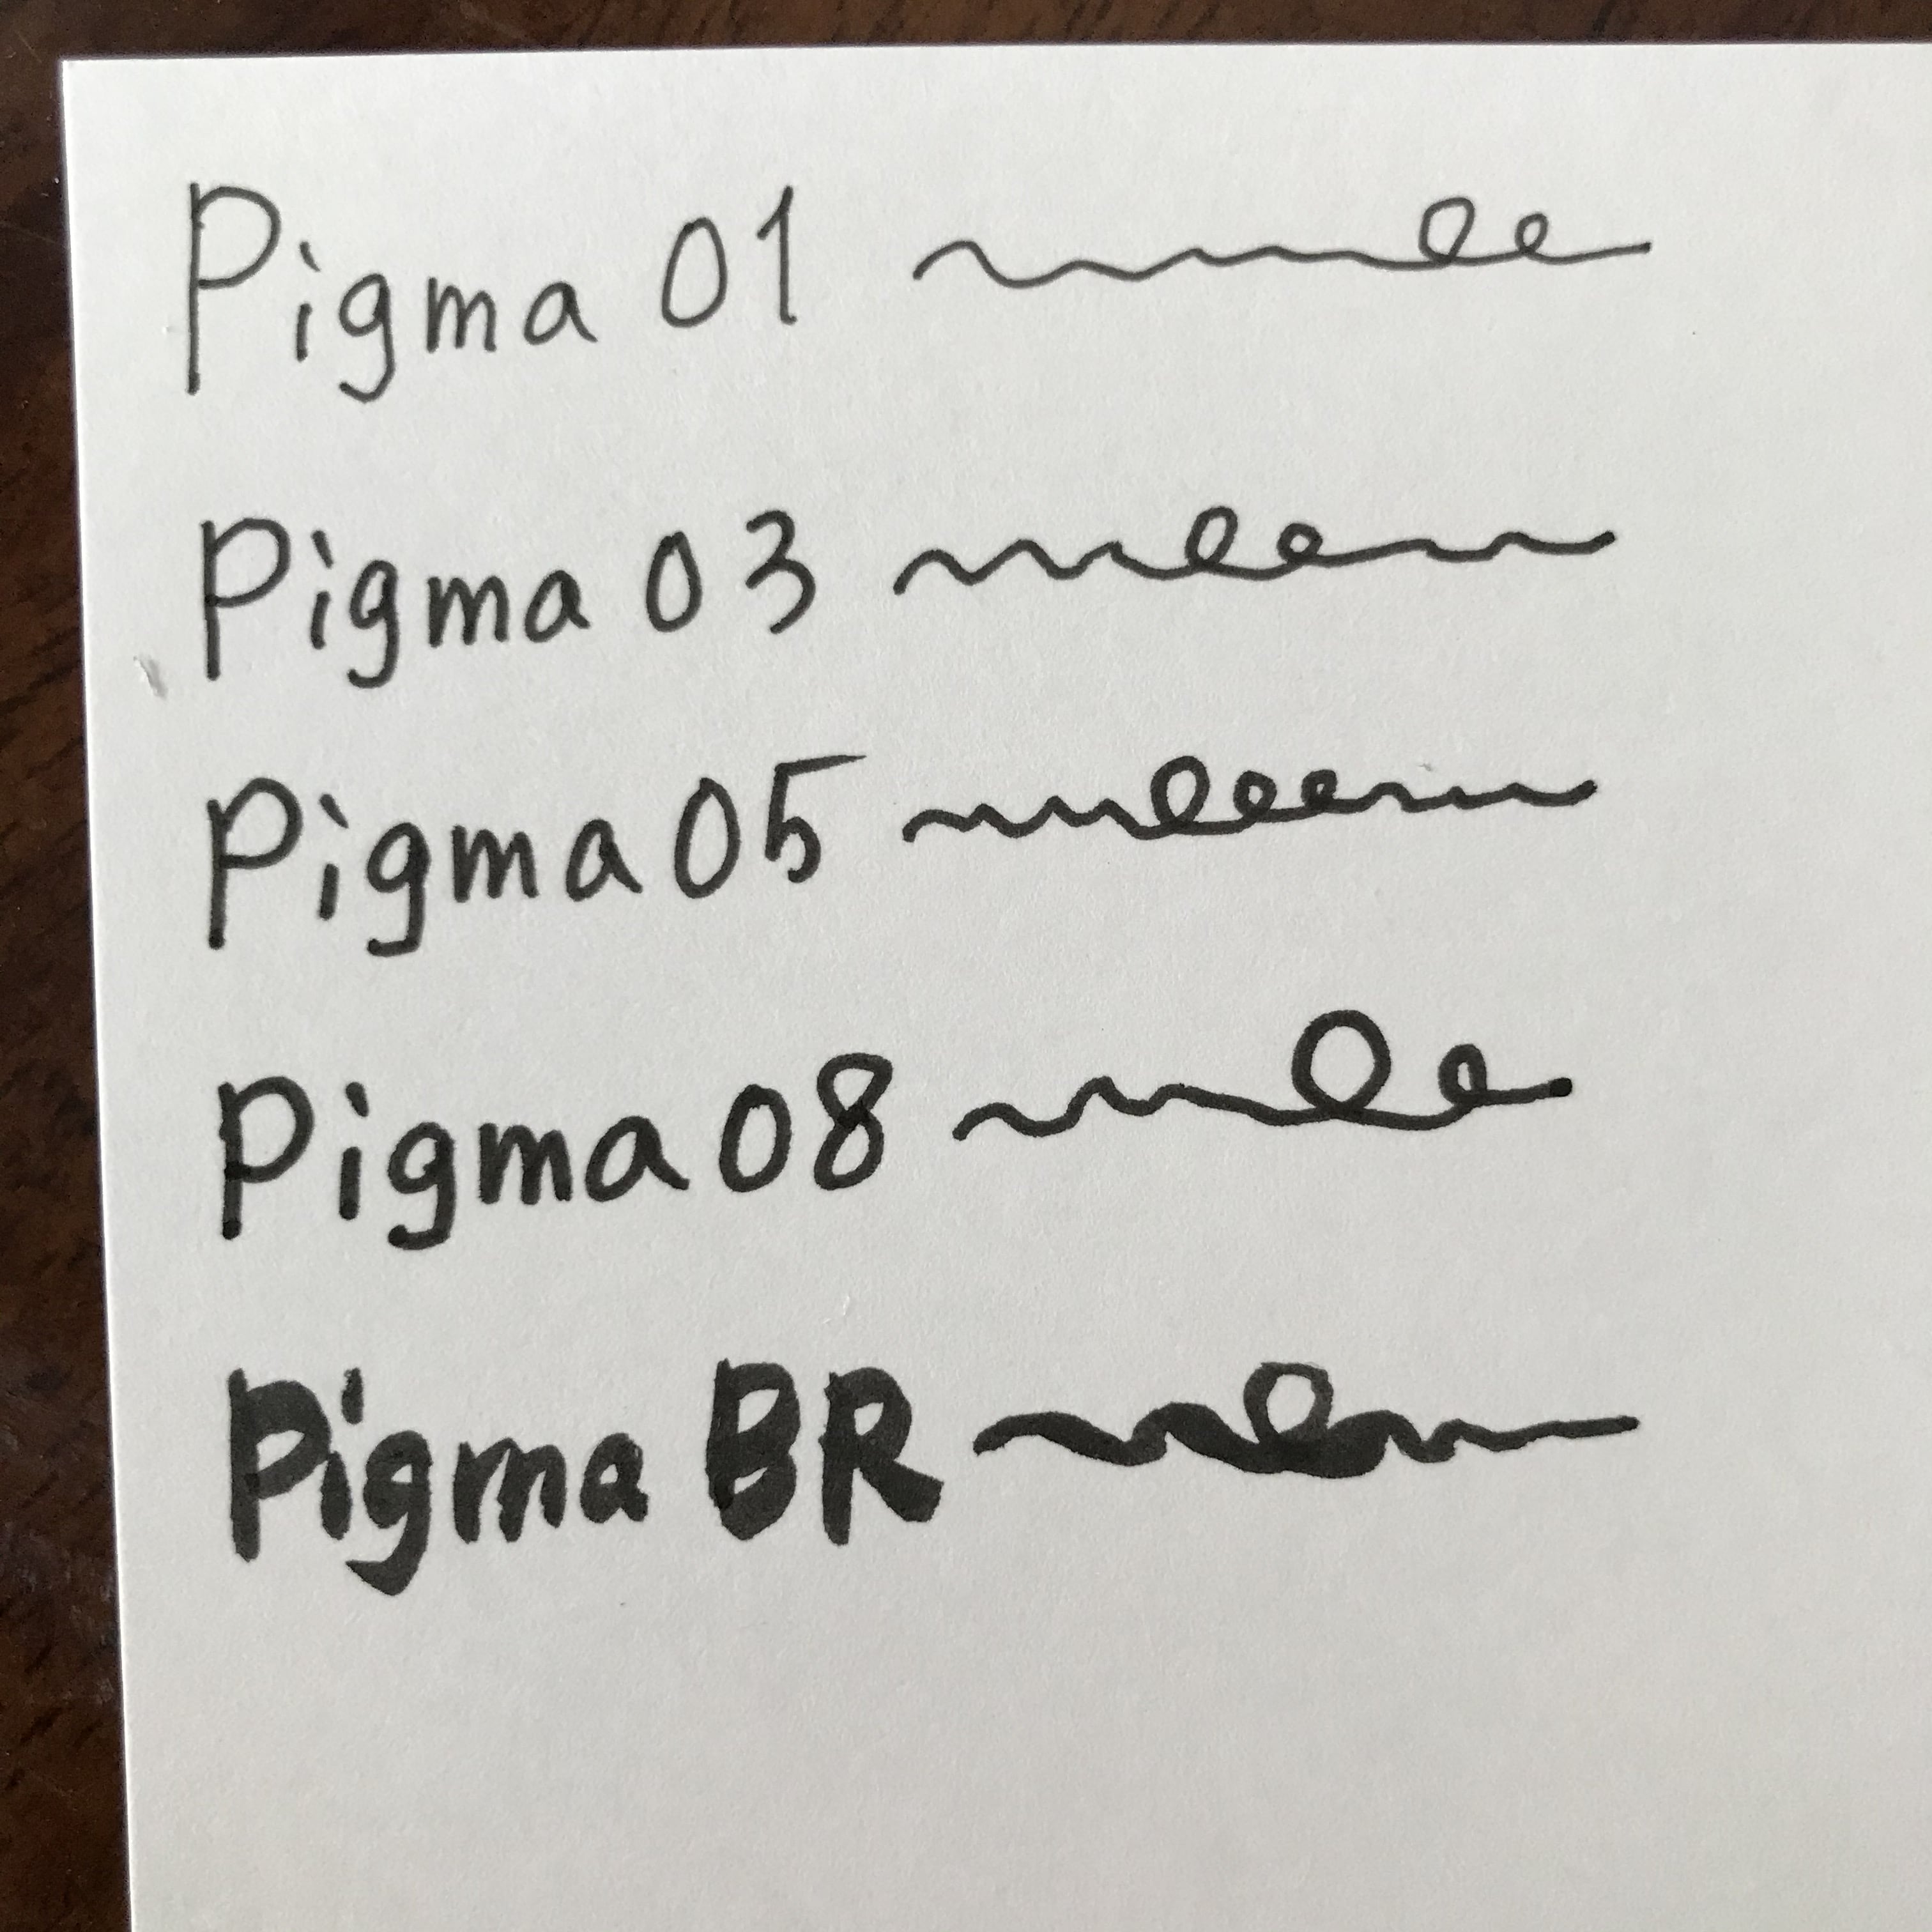 Pigma 01
Pigma 03
Pigma 05
Pigma 08
Pigma BR